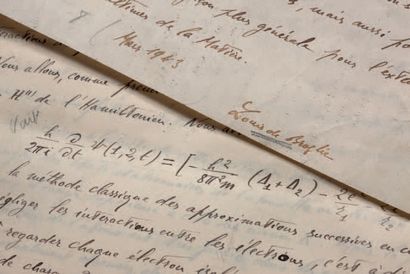 son plus générale pour l'ext
mais aussi po
de la Matière.
8
Mars 1943
Louis de Broglie
Nous allons, comme
H''' de l'Hamiltonien. Nous
h/2πi ∂/∂t ψ(1,2,t) = [- h²/8π²m (Δ₁+Δ₂) - 2e²/r₁
la méthode classique des approximations successives en
négliger les interactions entre les électrons, c'est à d
regarder chaque électron